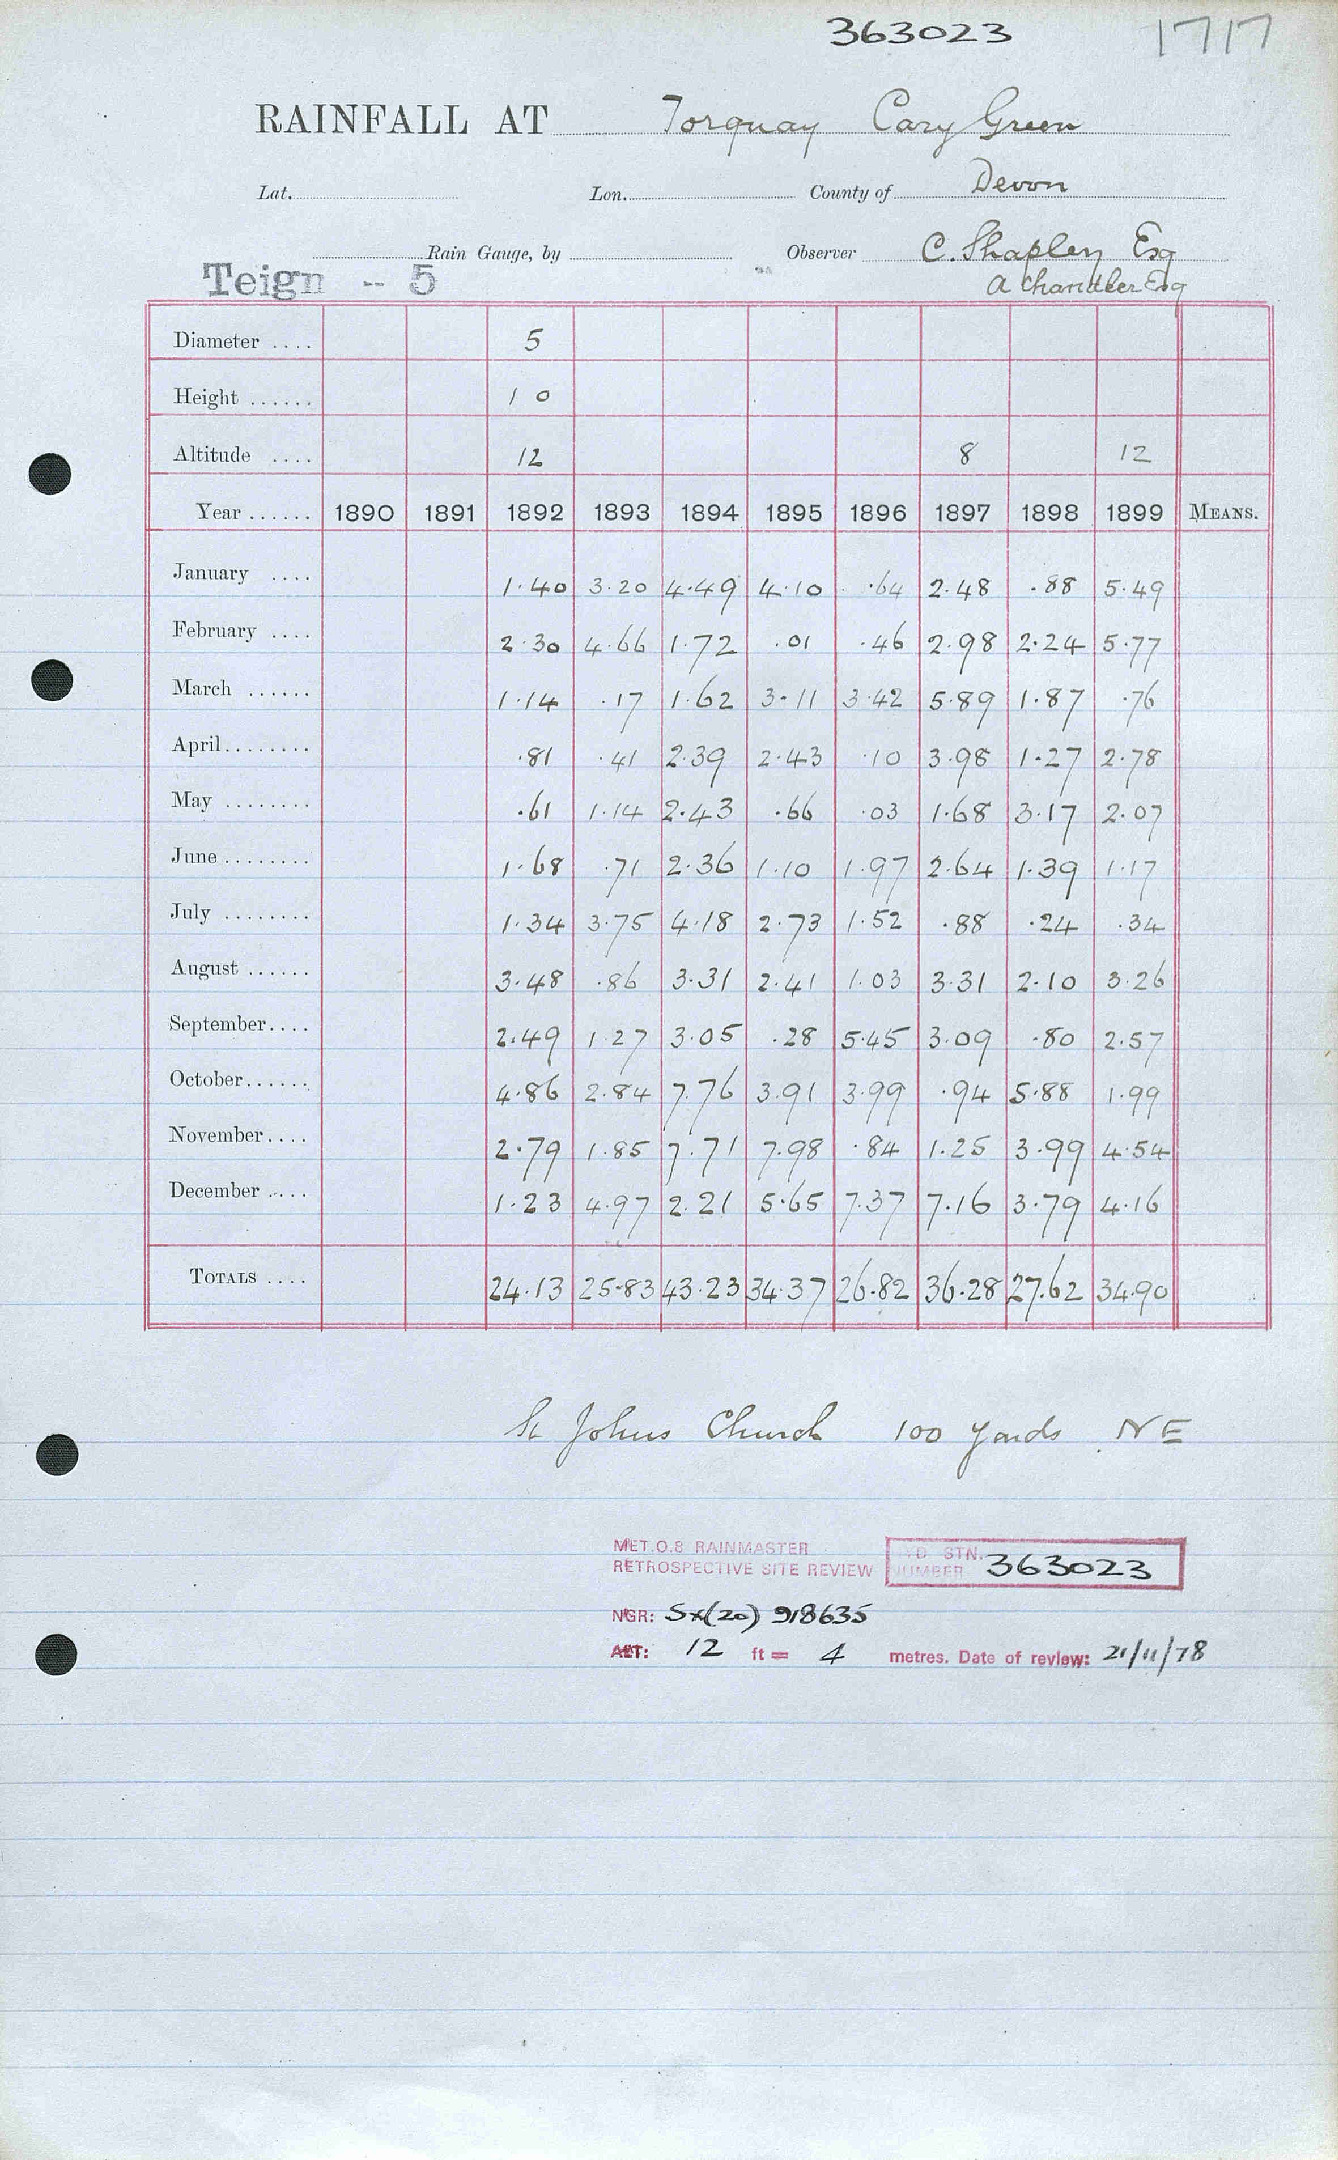 363023 1717
RAINFALL AT Torquay Cary Green
Lat. Lon. County of Devon
Rain Gauge, by Observer C. Shapley Esq
Teign -- 5 A Chandler Esq
Diameter .... 5
Height ...... 1 0
Altitude .... 12 8 12
Year ...... 1890 1891 1892 1893 1894 1895 1896 1897 1898 1899 MEANS.
January .... 1.40 3.20 4.49 4.10 .64 2.48 .88 5.49
February .... 2.30 4.66 1.72 .01 .46 2.98 2.24 5.77
March ...... 1.14 .17 1.62 3.11 3.42 5.89 1.87 .76
April........ .81 .41 2.39 2.43 .10 3.98 1.27 2.78
May ........ .61 1.14 2.43 .66 .03 1.68 3.17 2.07
June ........ 1.68 .71 2.36 1.10 1.97 2.64 1.39 1.17
July ........ 1.34 3.75 4.18 2.73 1.52 .88 .24 .34
August ...... 3.48 .86 3.31 2.41 1.03 3.31 2.10 3.26
September.... 2.49 1.27 3.05 .28 5.45 3.09 .80 2.57
October...... 4.86 2.84 7.76 3.91 3.99 .94 5.88 1.99
November.... 2.79 1.85 7.71 7.98 .84 1.25 3.99 4.54
December .... 1.23 4.97 2.21 5.65 7.37 7.16 3.79 4.16
TOTALS .... 24.13 25.83 43.23 34.37 26.82 36.28 27.62 34.90
St Johns Church 100 yards NE
MET.O.8 RAINMASTER
RETROSPECTIVE SITE REVIEW
STN.
NUMBER 363023
NGR: SX(20) 918635
ALT: 12 ft = 4 metres. Date of review: 21/11/78